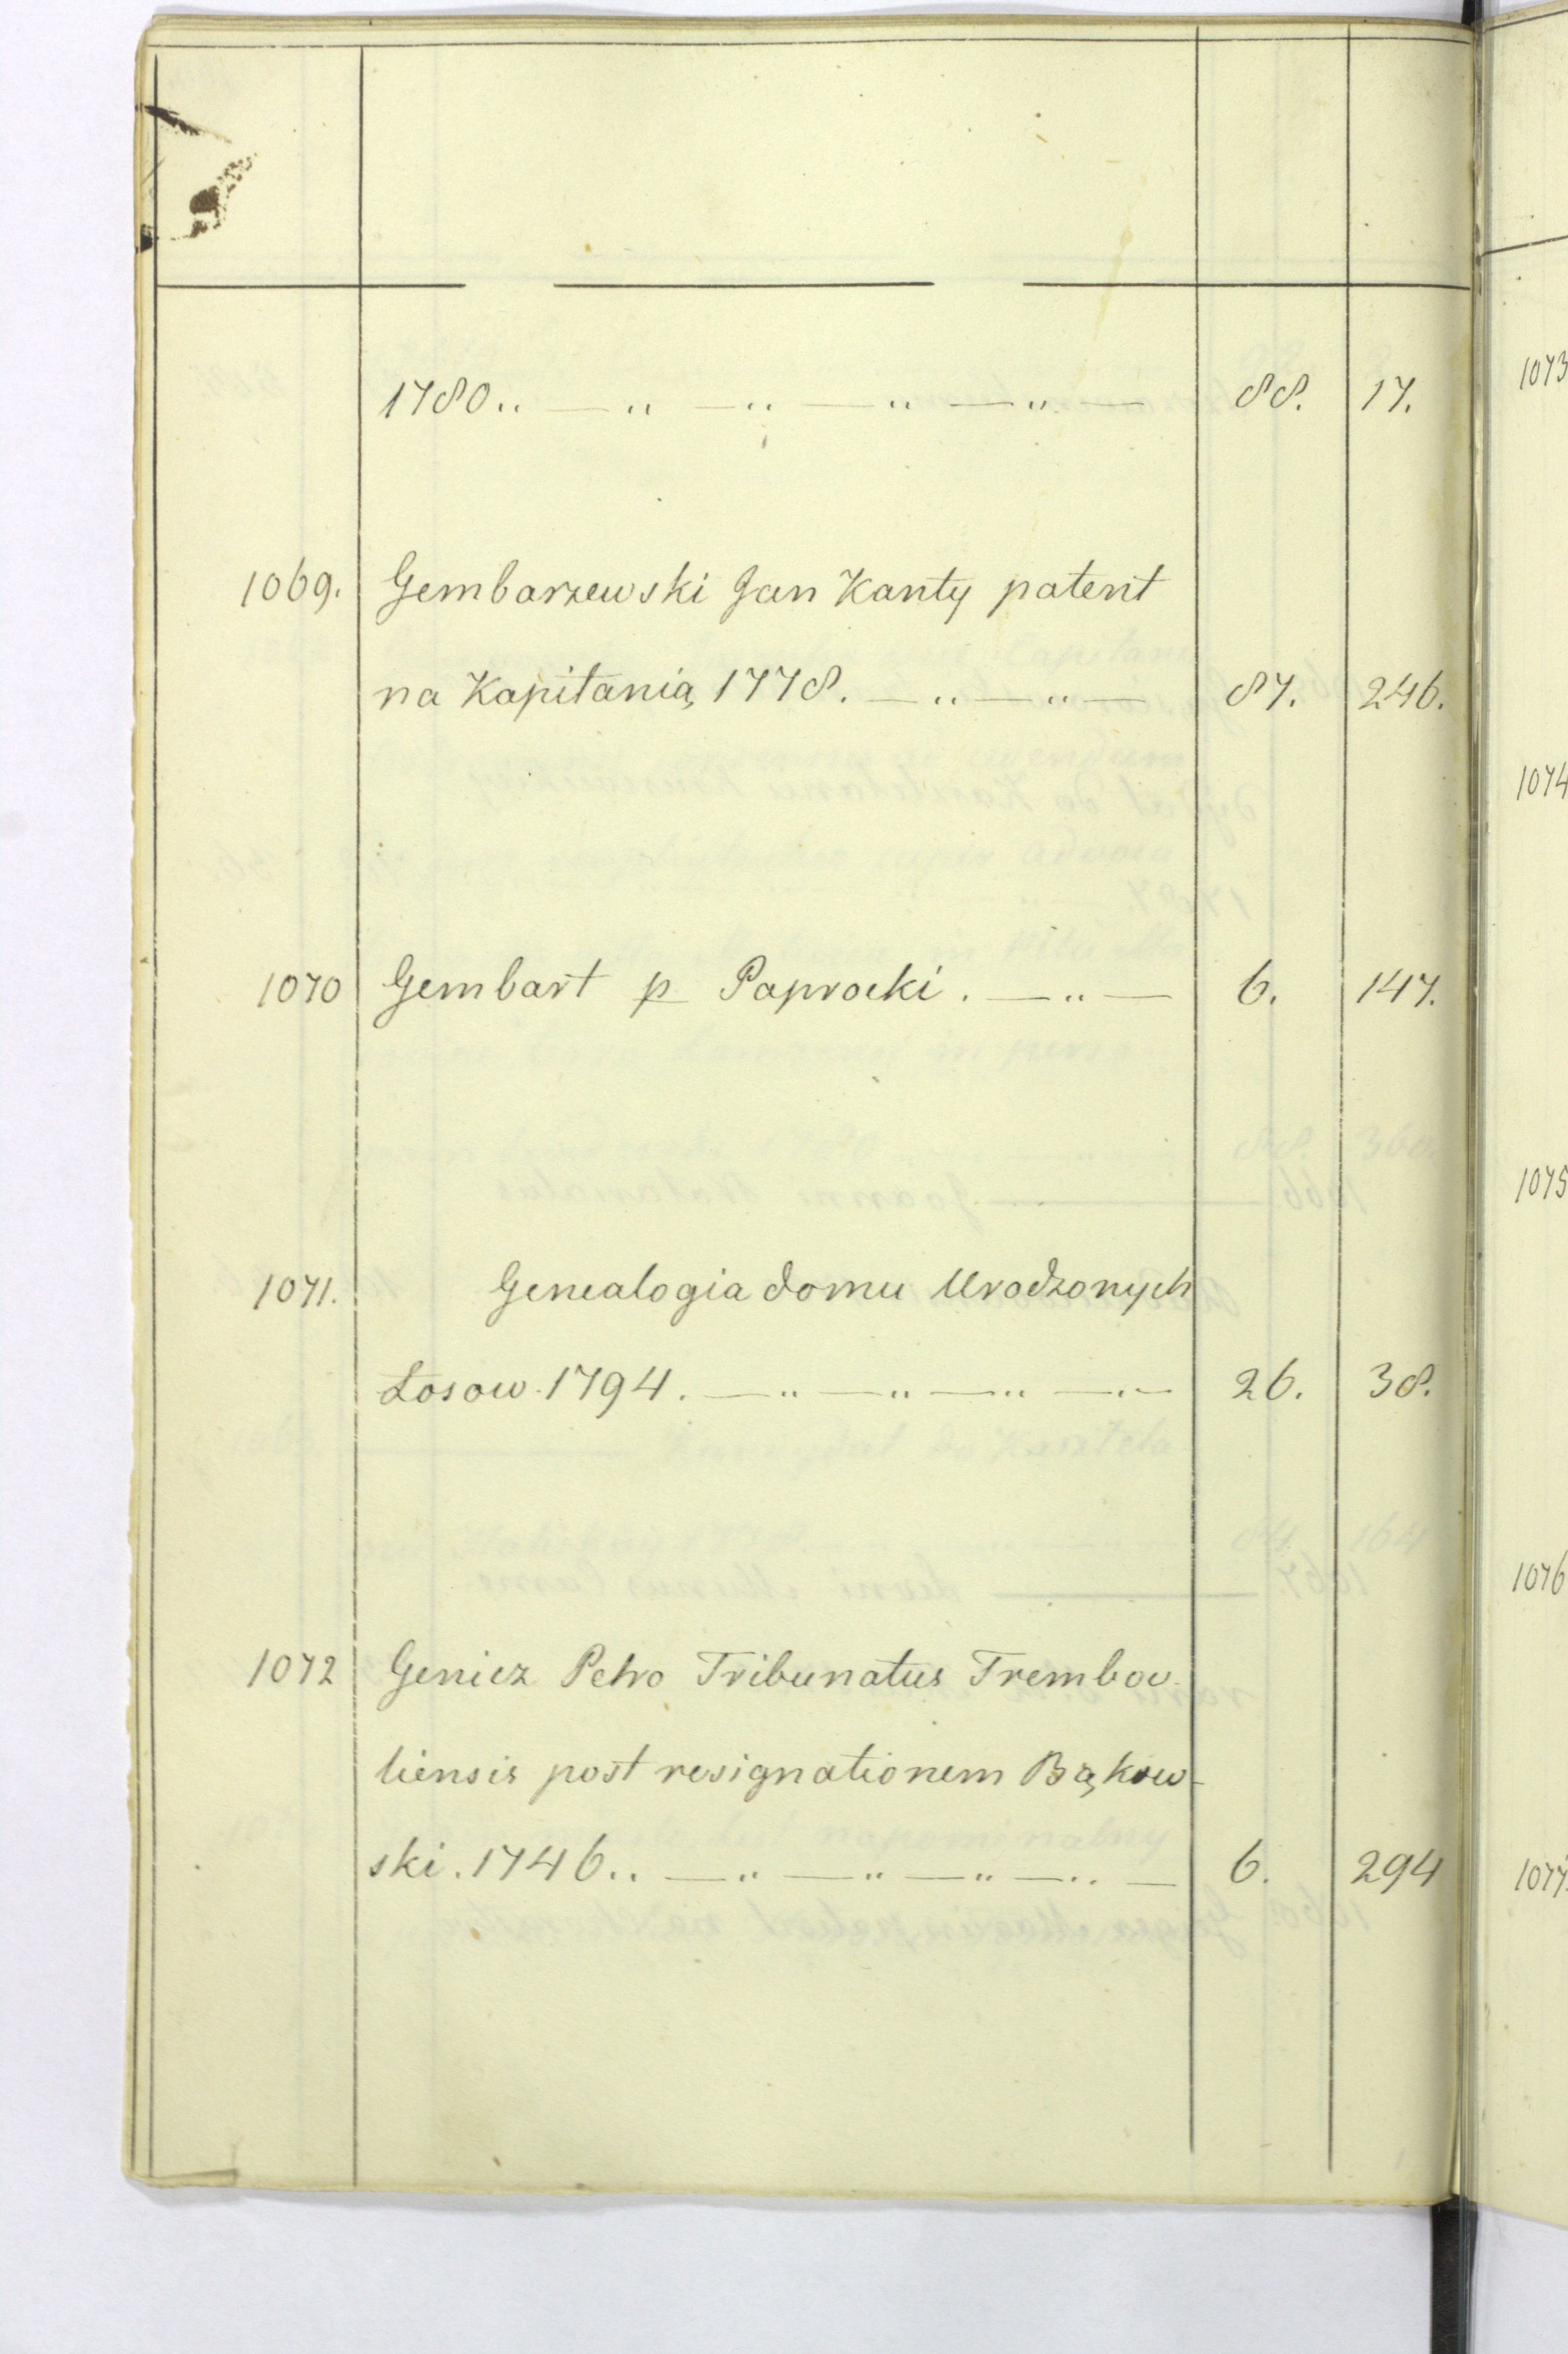 1780.. — „ — „ — „ — „ — 88. 17.
1069. Gembarzewski Jan Kanty patent
na Kapitanią 1778. — „ — „ — 87. 246.
1070 Gembart p Paprocki. — „ — 6. 147.
1071. Genealogia domu Urodzonych
Łosow 1794. — „ — „ — „ — „ — 26. 38.
1072 Geniez Petro Tribunatus Trembow-
liensis post resignationem Bąkow-
ski. 1746.. — „ — „ — „ — „ — 6. 294
1073
1074
1075
1076
1077.